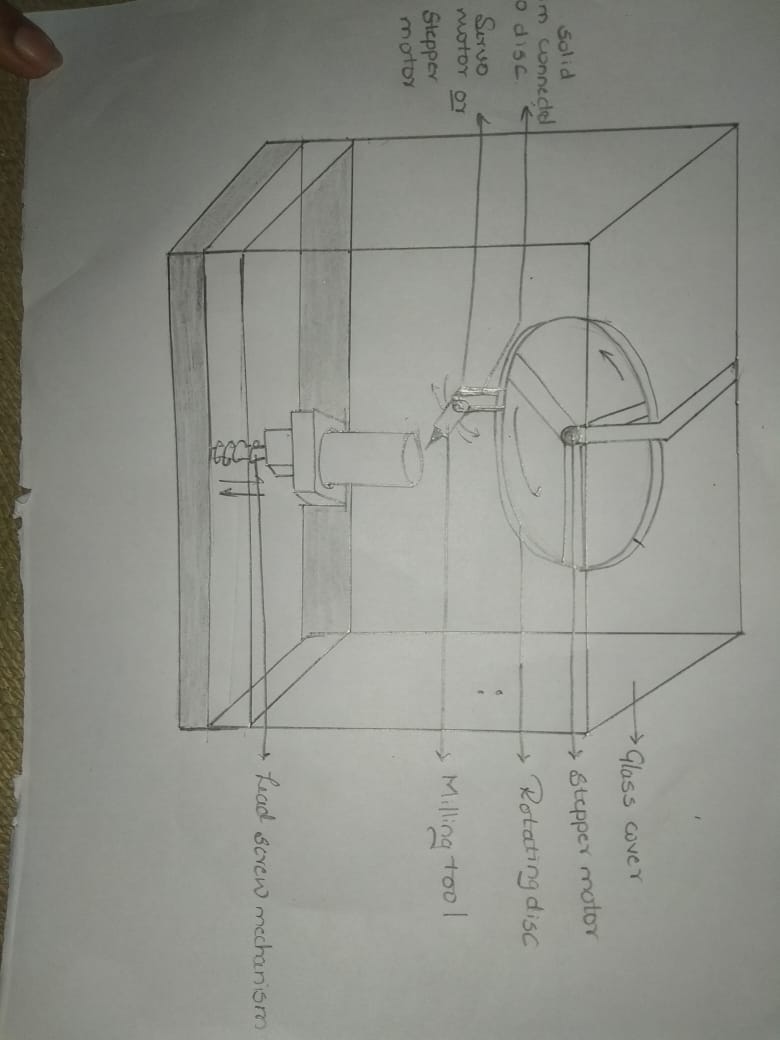 Solid
m connected
o disc.
Servo
motor or
Stepper
motor
Glass cover
Stepper motor
Rotating disc
Milling tool
Lead screw mechanism